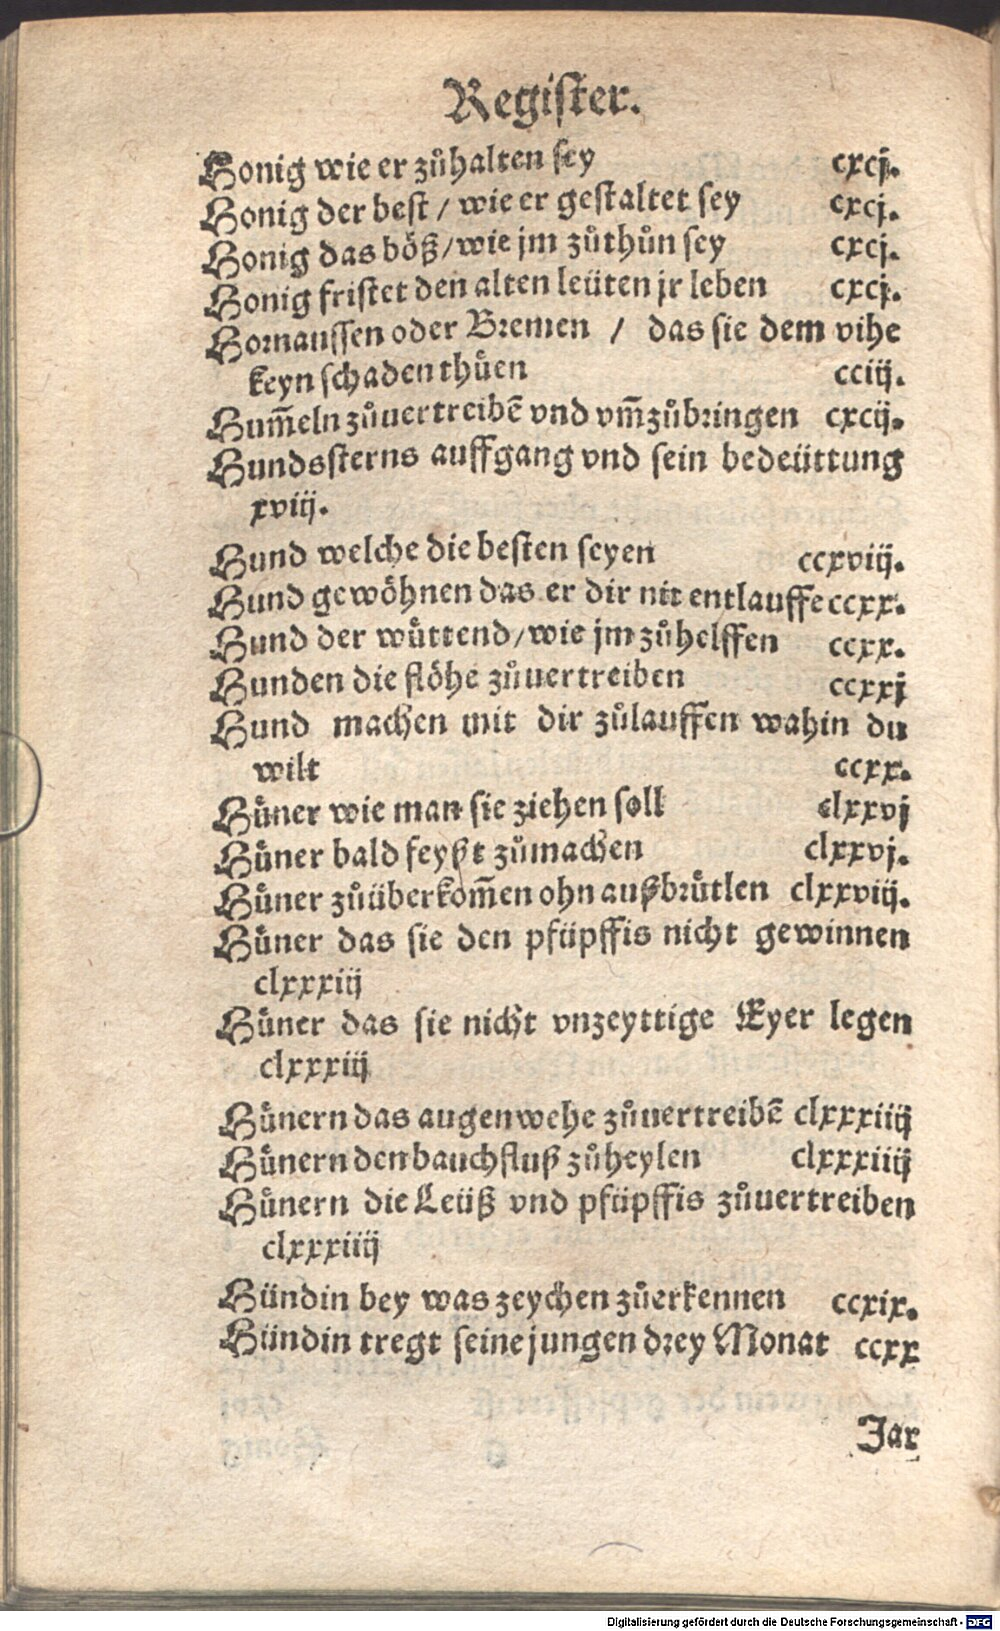 Regiſter.
Honig wie er zůhalten ſey cxcj.
Honig der beſt / wie er geſtaltet ſey cxcj.
Honig das böß / wie jm zůthůn ſey cxcj.
Honig friſtet den alten leüten jr leben cxcj.
Hornauſſen oder Bremen / das ſie dem vihe
keyn ſchaden thuͤen cciij.
Hum̄eln zůuertreibē vnd vm̄zůbringen cxcij.
Hundsſterns auffgang vnd ſein bedeüttung
xviij.
Hund welche die beſten ſeyen ccxviij.
Hund gewöhnen das er dir nit entlauffe ccxx.
Hund der wuͤttend / wie jm zůhelffen ccxx.
Hunden die flöhe zůuertreiben ccxxj
Hund machen mit dir zůlauffen wahin du
wilt ccxx.
Huͤner wie man ſie ziehen ſoll clxxvj
Huͤner bald feyßt zůmachen clxxvj.
Huͤner zůüberkom̄en ohn außbruͤtlen clxxviij.
Huͤner das ſie den pfüpffis nicht gewinnen
clxxxiij
Huͤner das ſie nicht vnzeyttige Eyer legen
clxxxiij
Huͤnern das augenwehe zůuertreibē clxxxiiij
Huͤnern den bauchfluß zůheylen clxxxiiij
Huͤnern die Leüß vnd pfüpffis zůuertreiben
clxxxiiij
Hündin bey was zeychen zůerkennen ccxix.
Hündin tregt ſeine jungen drey Monat ccxx
Jar
Digitalisierung gefördert durch die Deutsche Forschungsgemeinschaft - DFG